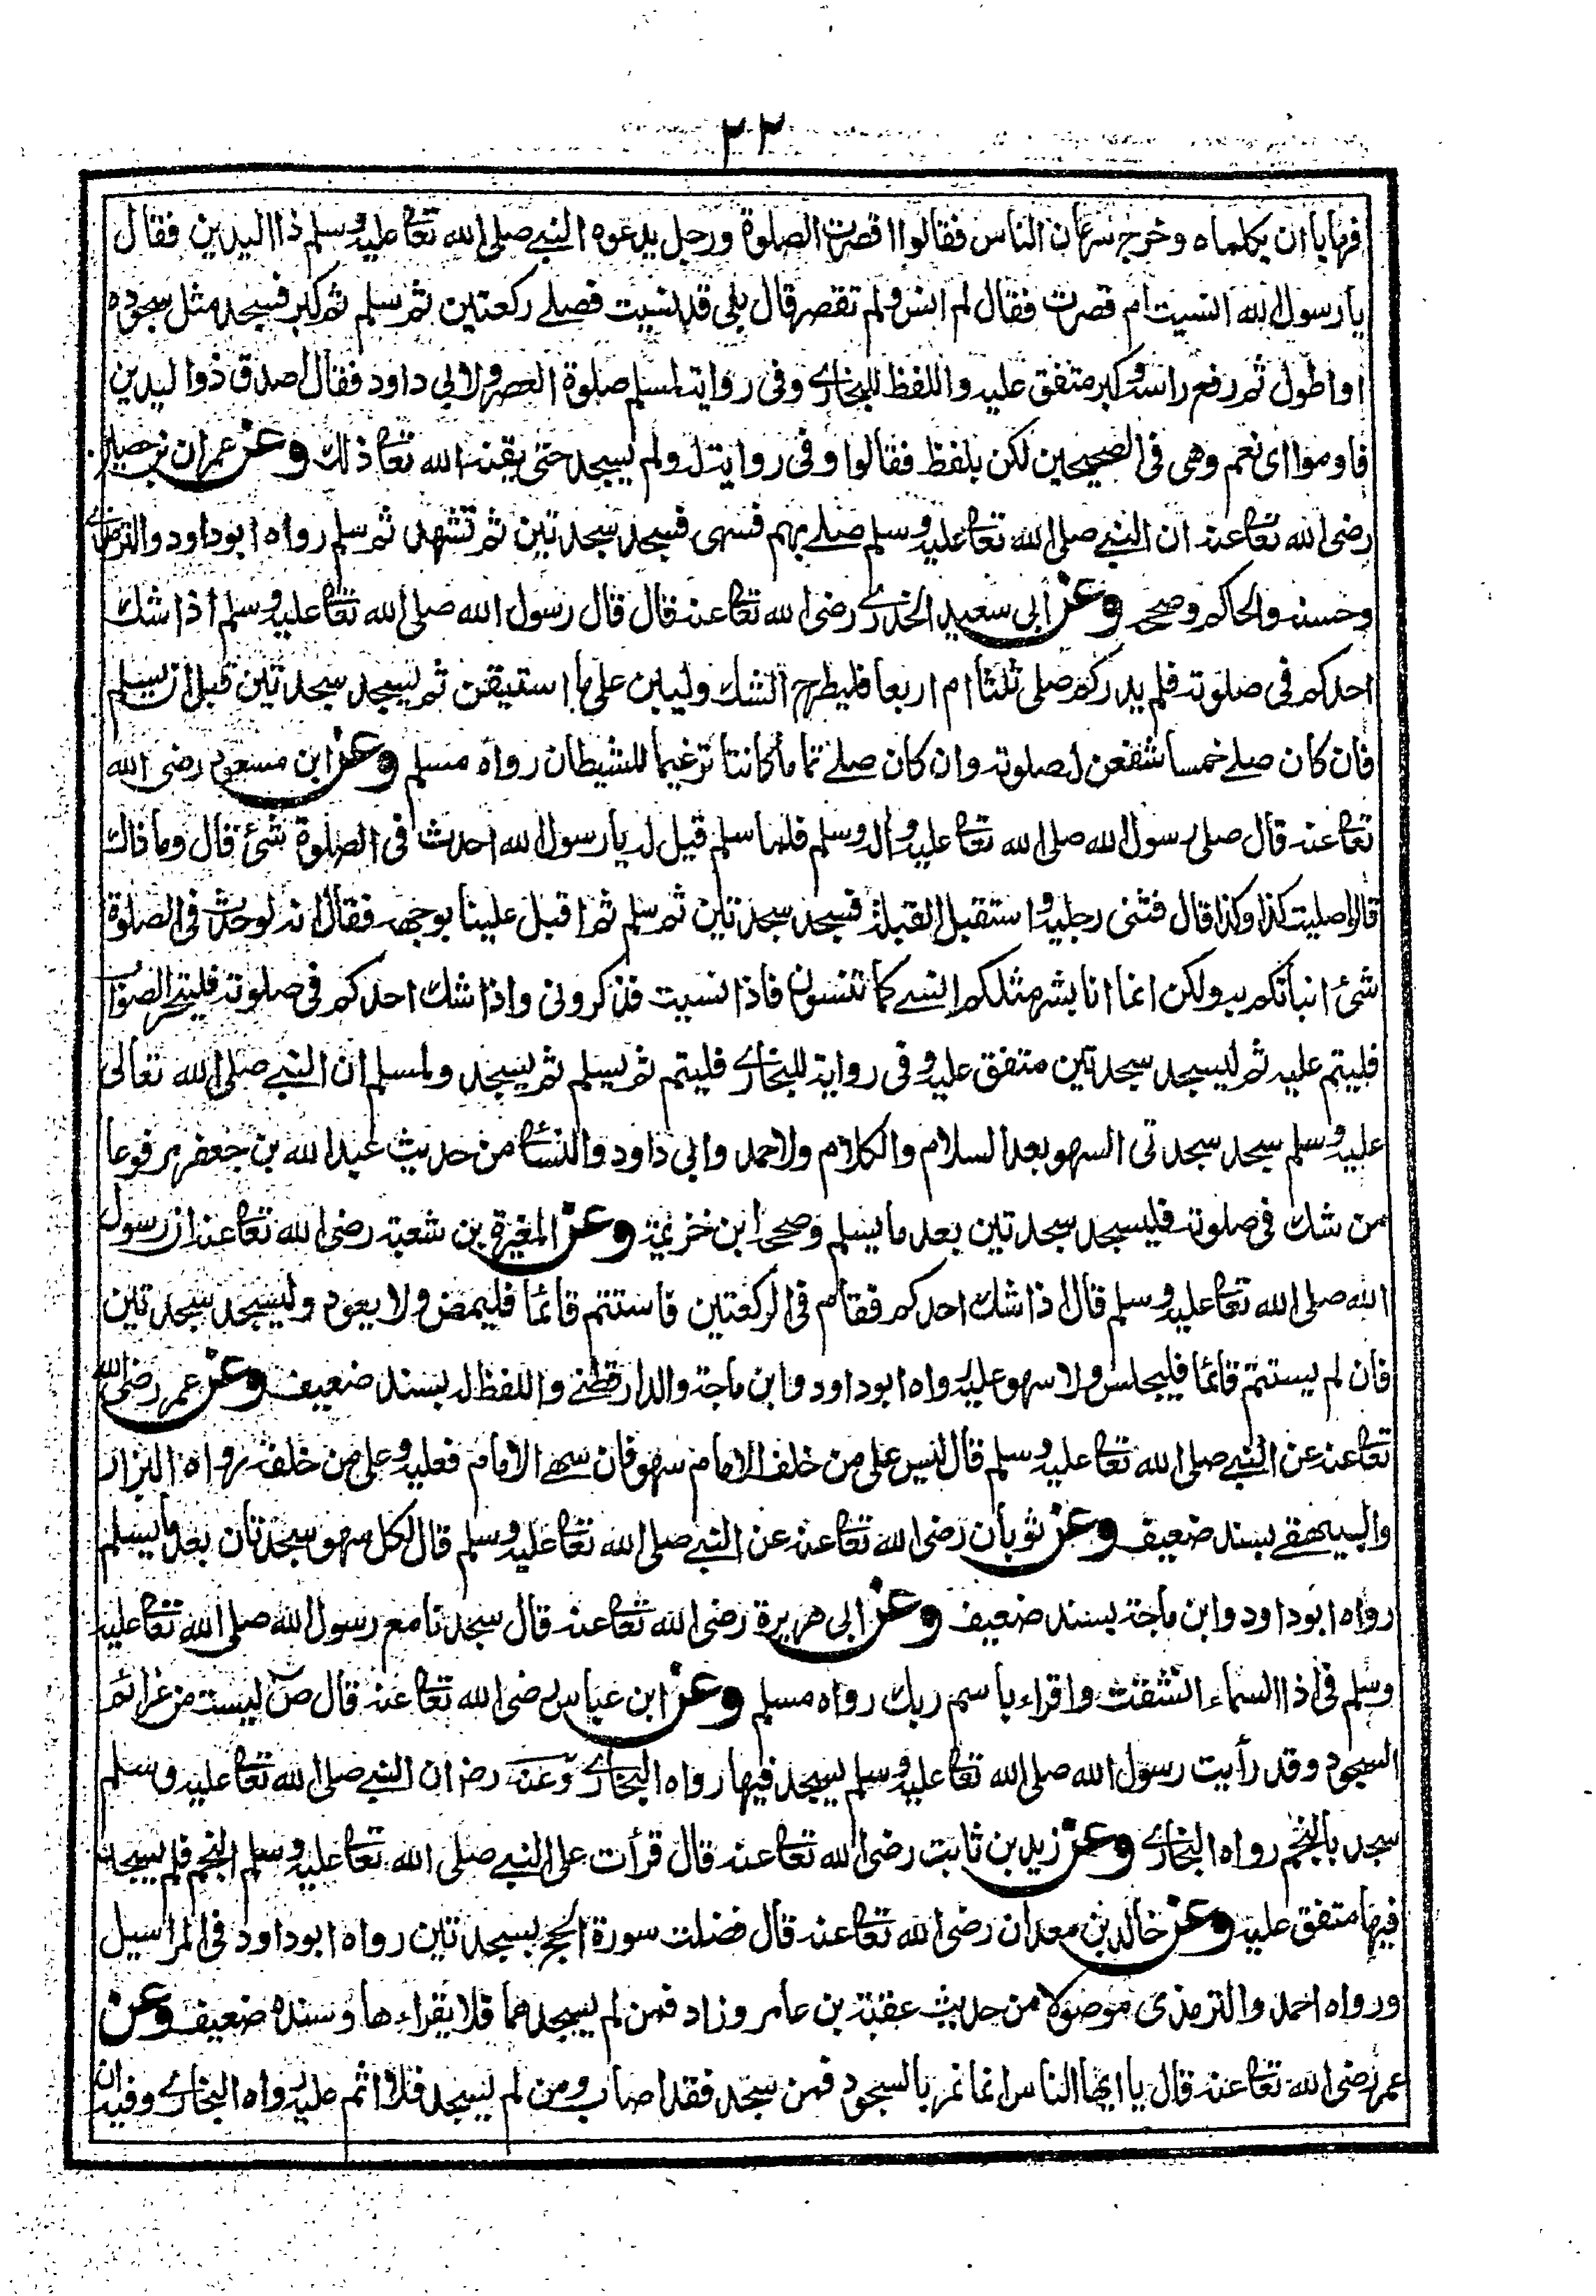 ٢٢
فهابا ان يكلماه وخرج سرعان الناس فقالوا اقصرت الصلوة ورجل يدعوه النبي صلى الله تعا عليه وسلم ذا اليدين فقال
يا رسول الله انسيت ام قصرت فقال لم انس ولم تقصر قال بلى قد نسيت فصلى ركعتين ثم سلم ثم كبر فسجد مثل سجوده
او اطول ثم رفع راسه وكبر متفق عليه واللفظ للبخاري وفى رواية لمسلم صلوة العصر ولابي داود فقال اصدق ذوا ليدين
فاوموا اى نعم وهى فى الصحيحين لكن بلفظ فقالوا وفى رواية له ولم يسجد حتى يقنه الله تعا ذلك وعن عمران بن حصين
رضى الله تعا عنه ان النبي صلى الله تعا عليه وسلم صلے بهم فسهى فسجد سجدتين ثم تشهد ثم سلم رواه ابوداود والترمذي
وحسنه والحاكم وصححه وعن ابى سعيد الخدري رضى الله تعا عنه قال قال رسول الله صلى الله تعا عليه وسلم اذا شك
احدكم فى صلوته فلم يدر كم صلى ثلثا ام اربعا فليطرح الشك وليبن على ما استيقن ثم يسجد سجدتين قبل ان يسلم
فان كان صلے خمسا شفعن له صلوته وان كان صلے تماما كانتا ترغيما للشيطان رواه مسلم وعن ابن مسعود رضى الله
تعا عنه قال صلى رسول الله صلى الله تعا عليه واله وسلم فلما سلم قيل له يا رسول الله احدث فى الصلوة شئ قال وما ذاك
قالوا صليت كذا وكذا قال فثنى رجليه واستقبل القبلة فسجد سجدتين ثم سلم ثم اقبل علينا بوجهه فقال انه لو حدث فى الصلوة
شئ انبأتكم به ولكن انما انا بشر مثلكم انسے كما تنسون فاذا نسيت فذكرونى واذا شك احدكم فى صلوته فليتحر الصواب
فليتم عليه ثم ليسجد سجدتين متفق عليه وفى رواية للبخاري فليتم ثم يسلم ثم يسجد ولمسلم ان النبي صلى الله تعالى
عليه وسلم سجد سجدتى السهو بعد السلام والكلام ولاحمد وابي داود والنسا من حديث عبد الله بن جعفر مرفوعا
من شك فى صلوته فليسجد سجدتين بعد ما يسلم وصححه ابن خزيمة وعن المغيرة بن شعبة رضى الله تعا عنه ان رسول
الله صلى الله تعا عليه وسلم قال اذا شك احدكم فقام فى الركعتين فاستتم قائما فليمض ولا يعود وليسجد سجدتين
فان لم يستتم قائما فليجلس ولا سهو عليه رواه ابوداود وابن ماجة والدارقطنے واللفظ له بسند ضعيف وعن عمر رضى الله
تعا عنه عن النبي صلى الله تعا عليه وسلم قال ليس على من خلف الامام سهو فان سهے الامام فعليه وعلى من خلفه رواه البزار
والبيهقے بسند ضعيف وعن ثوبان رضى الله تعا عنه عن النبي صلى الله تعا عليه وسلم قال لكل سهو سجدتان بعد ما يسلم
رواه ابوداود وابن ماجة بسند ضعيف وعن ابى هريرة رضى الله تعا عنه قال سجدنا مع رسول الله صلى الله تعا عليه
وسلم فى اذا السماء انشقت واقراء باسم ربك رواه مسلم وعن ابن عباس رضى الله تعا عنه قال ص ليست من عزائم
السجود وقد رأيت رسول الله صلى الله تعا عليه وسلم يسجد فيها رواه البخاري وعنه رض ان النبي صلى الله تعا عليه وسلم
سجد بالنجم رواه البخاري وعن زيد بن ثابت رضى الله تعا عنه قال قرأت على النبي صلى الله تعا عليه وسلم النجم فلم يسجد
فيها متفق عليه وعن خالد بن معدان رضى الله تعا عنه قال فضلت سورة الحج بسجدتين رواه ابوداود فى المراسيل
ورواه احمد والترمذى موصولا من حديث عقبة بن عامر وزاد فمن لم يسجدهما فلا يقراءها وسنده ضعيف وعن
عمر رضى الله تعا عنه قال يا ايها الناس انما نمر بالسجود فمن سجد فقد اصاب ومن لم يسجد فلا اثم عليه رواه البخاري وفيه ان